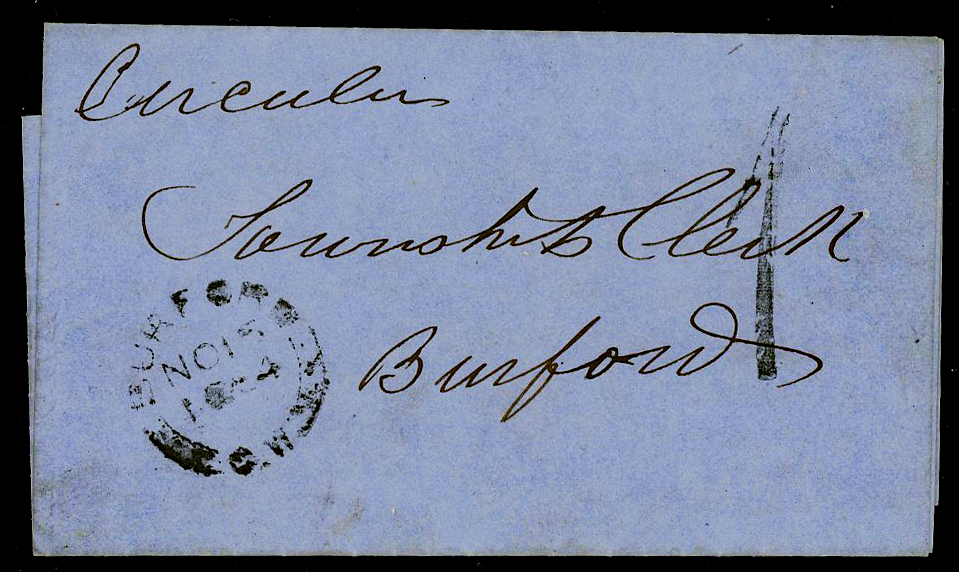 Circular
Township Clerk
Burford
BURFORD
NO 15
C.W.
1